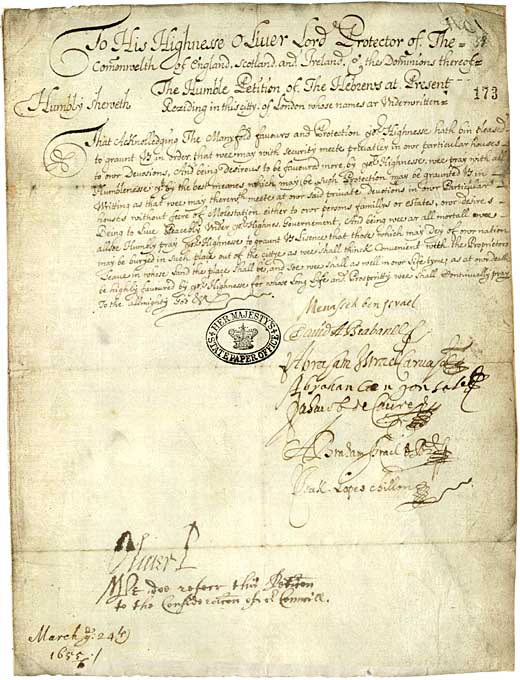 To His Highnesse Oliver Lord Protector of The=
Comonwelth of England, Scotland, and Ireland, & the Dominions thereof=
The Humble Petition of The Hebrews at Present
Reziding in this city of London whose names ar Vnderwritten=
Humbly Sheweth
173
That Acknolledging The Manyfold favours and Protection yor Highnesse hath bin pleased
to graunt Vs in order, that wee may with security meete privatley in owr particular houses
to owr Devosions, And being desirous to be favoured more by yor Highnesse, wee pray with all
Humblenesse yt by the best meanes which may be, Such Protection may be graunted Vs in
Writing as that wee may therewth meete at owr said private devosions in owr Particular
houses without feere of Molestation either to owr persons famillies or estates, owr desires
Being to Live Peacebly Vnder yor Highnes Governement, And being wee ar all mortall wee
allsoe Humbly pray yor Highnesse to graunt Vs Lisence that those which may dey of owr nation
may be buryed in such place out of the cittye as wee shall thinck Convenient with the Proprietors
Leave in whose Land the place shall be, and soe wee shall as well in owr Life tyme, as at owr death
be highly favoured by yor Highnesse for whose Long Life and Prosperity wee shall Continually pray
To the allmighty God &
HER MAJESTY'S
STATE PAPER OFFICE
Menasseh ben Israel
David Abrabanell
Abraham Israel Carvajal
Abraham Coen Gonzales
Jahacob de Caceres
Abraham Israel
Isak Lopes Chillon
Oliver P
We doe referr this Petition
to the Consideration of ye Councill.
March ye 24th
1655 :/